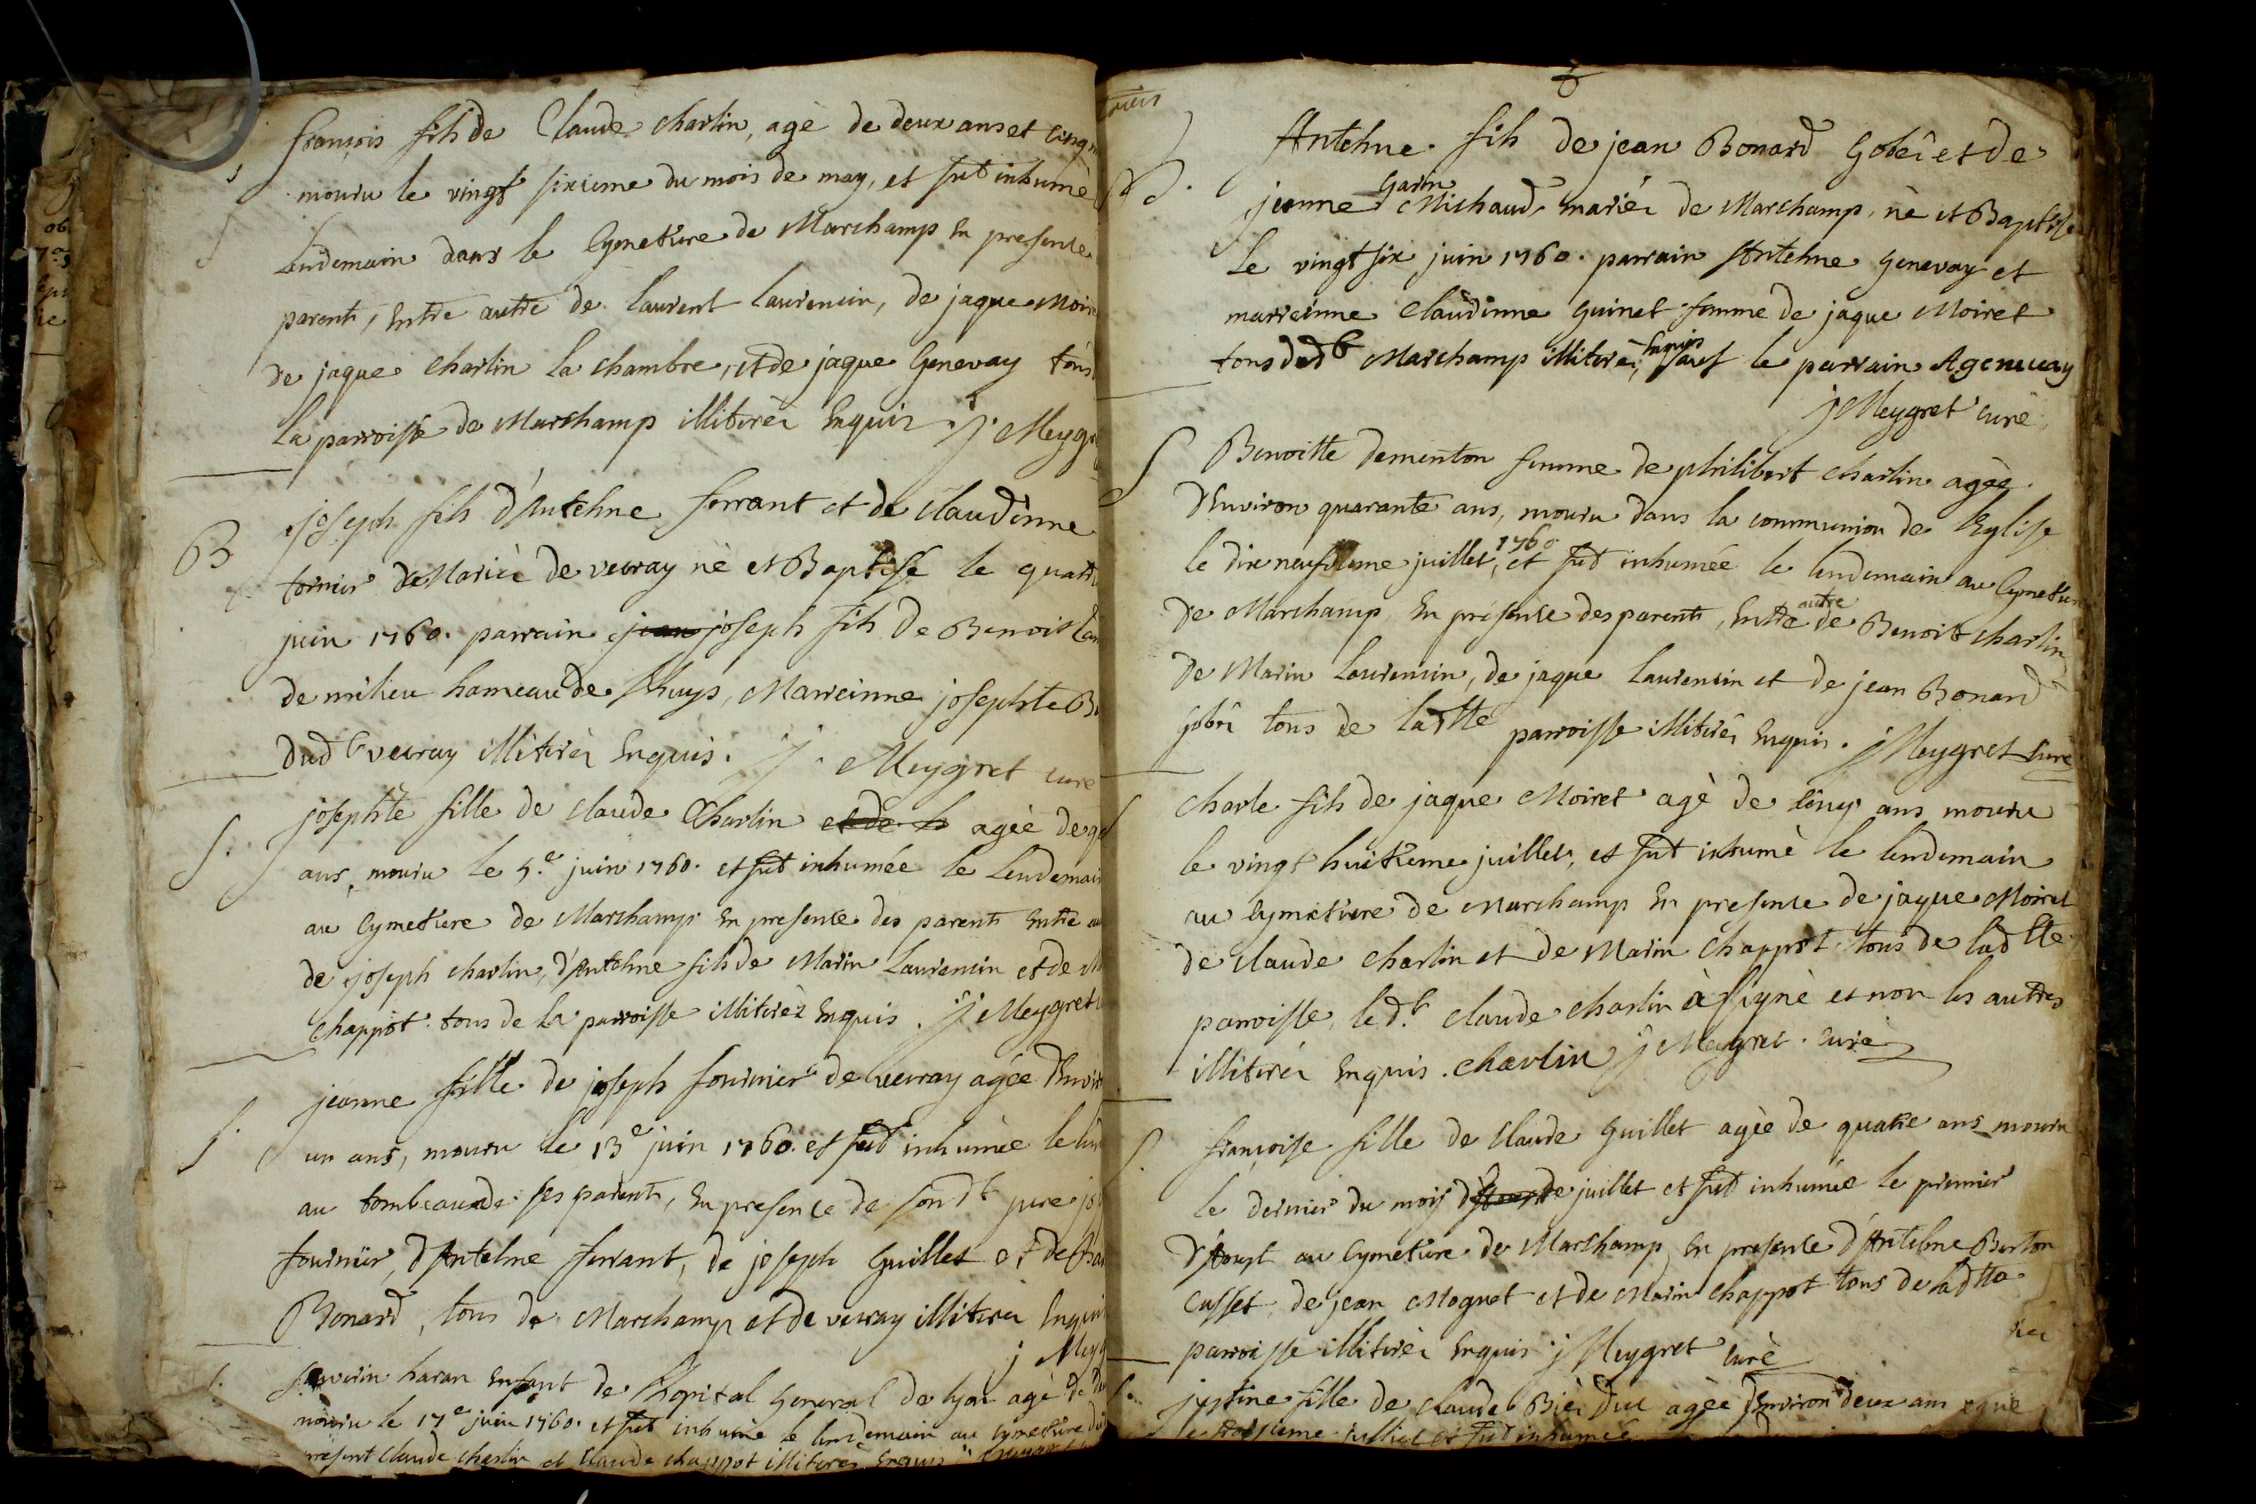 françois fils de Claude charlin, agé de deux ans et cinq
S mouru le vingt sixieme du mois de may, et fut inhumé
Lendemain dans le Cymetiere de Marchamp En presence
parents, Entre autre de laurent laurencin, de jaque Moir
de jaque charlin la chambre, et de jaque Genevay tous
La parroisse de Marchamp illiterés Enquis j. Meygr
joseph fils d'Antelme ferrant et de Claudinne
B fornier Mariés de veuray né et Baptisé le quatr
juin 1760. parrain jean joseph fils de Benoist
de milieu hameau de Rhuys, Marreinne josephte B
dud t veuray illiterés Enquis. j. Meygret curé
josephte fille de claude Charlin et de la agée de q
S. ans, mouru le 5.e juin 1760. et fut inhumée le Lendemain
au Cymetiere de Marchamp En presence des parents Entre au
de joseph charlin, d'Antelme fils de Marin Laurencin et de M
Chappot. tous de la parroisse illiterés Enquis. j. Meygret
jeanne fille de joseph fournier de veuray agée d'Envir
S. un ans, mouru le 13e juin 1760. et fut inhumée le len
au tombeau de ses parents, En presence de son dt pere jo
fournier, d'Antelme ferrant, de joseph Guillet et de
Bonard, tous de Marchamp et de veuray illiterés Enquis
j Meyg
S. Severin haran Enfant de l'hopital General de lyon agé de
mouru le 17e juin 1760. et fut inhumé le lendemain au Cymetiere du
present claude charlin et claude chappot illiterés Enquis
Antelme fils de jean Bonard Gobet et de
B jeanne Garin Michaud, mariés de Marchamp, né et Baptisé
Le vingt six juin 1760. parrain Antelme Genevay et
marreinne Claudinne Guinet femme de jaque Moiret
tous dud t Marchamp illiterés, Enquis sauf le parrain AGenevay
j Meygret curé
S Benoitte dementon femme de philibert charlin agée
d'Environ quarante ans, mouru dans la communion de l'Eglise
le dixneufvieme juillet, 1760 et fut inhumée le lendemain au Cymetiere
de Marchamp En presence des parents, Entre autre de Benoit charlin
de Marin Laurencin, de jaque Laurencin et de jean Bonard
gobet tous de ladtte parroisse illiterés Enquis. j Meygret curé
charle fils de jaque Moiret agé de cinq ans mouru
le vingt huitieme juillet, et fut inhumé le lendemain
au Cymetiere de Marchamp En presence de jaque Moiret
de claude charlin et de Marin Chappot. tous de ladtte
parroisse, led.t claude charlin à signé et non les autres
illiterés Enquis. charlin j Meygret. curé
S. françoise fille de claude Guillet agée de quatre ans mouru
le dernier du mois d'Aoust de juillet et fut inhumée le premier
d'Aoust au Cymetiere de Marchamp En presence d'Antelme Berton
Cusset de jean Moguet et de Marin chappot tous de ladtte
parroisse illiterés Enquis j Meygret curé
S. justine fille de claude agée d'Environ deux ans
troisieme juillet et fut inhumée